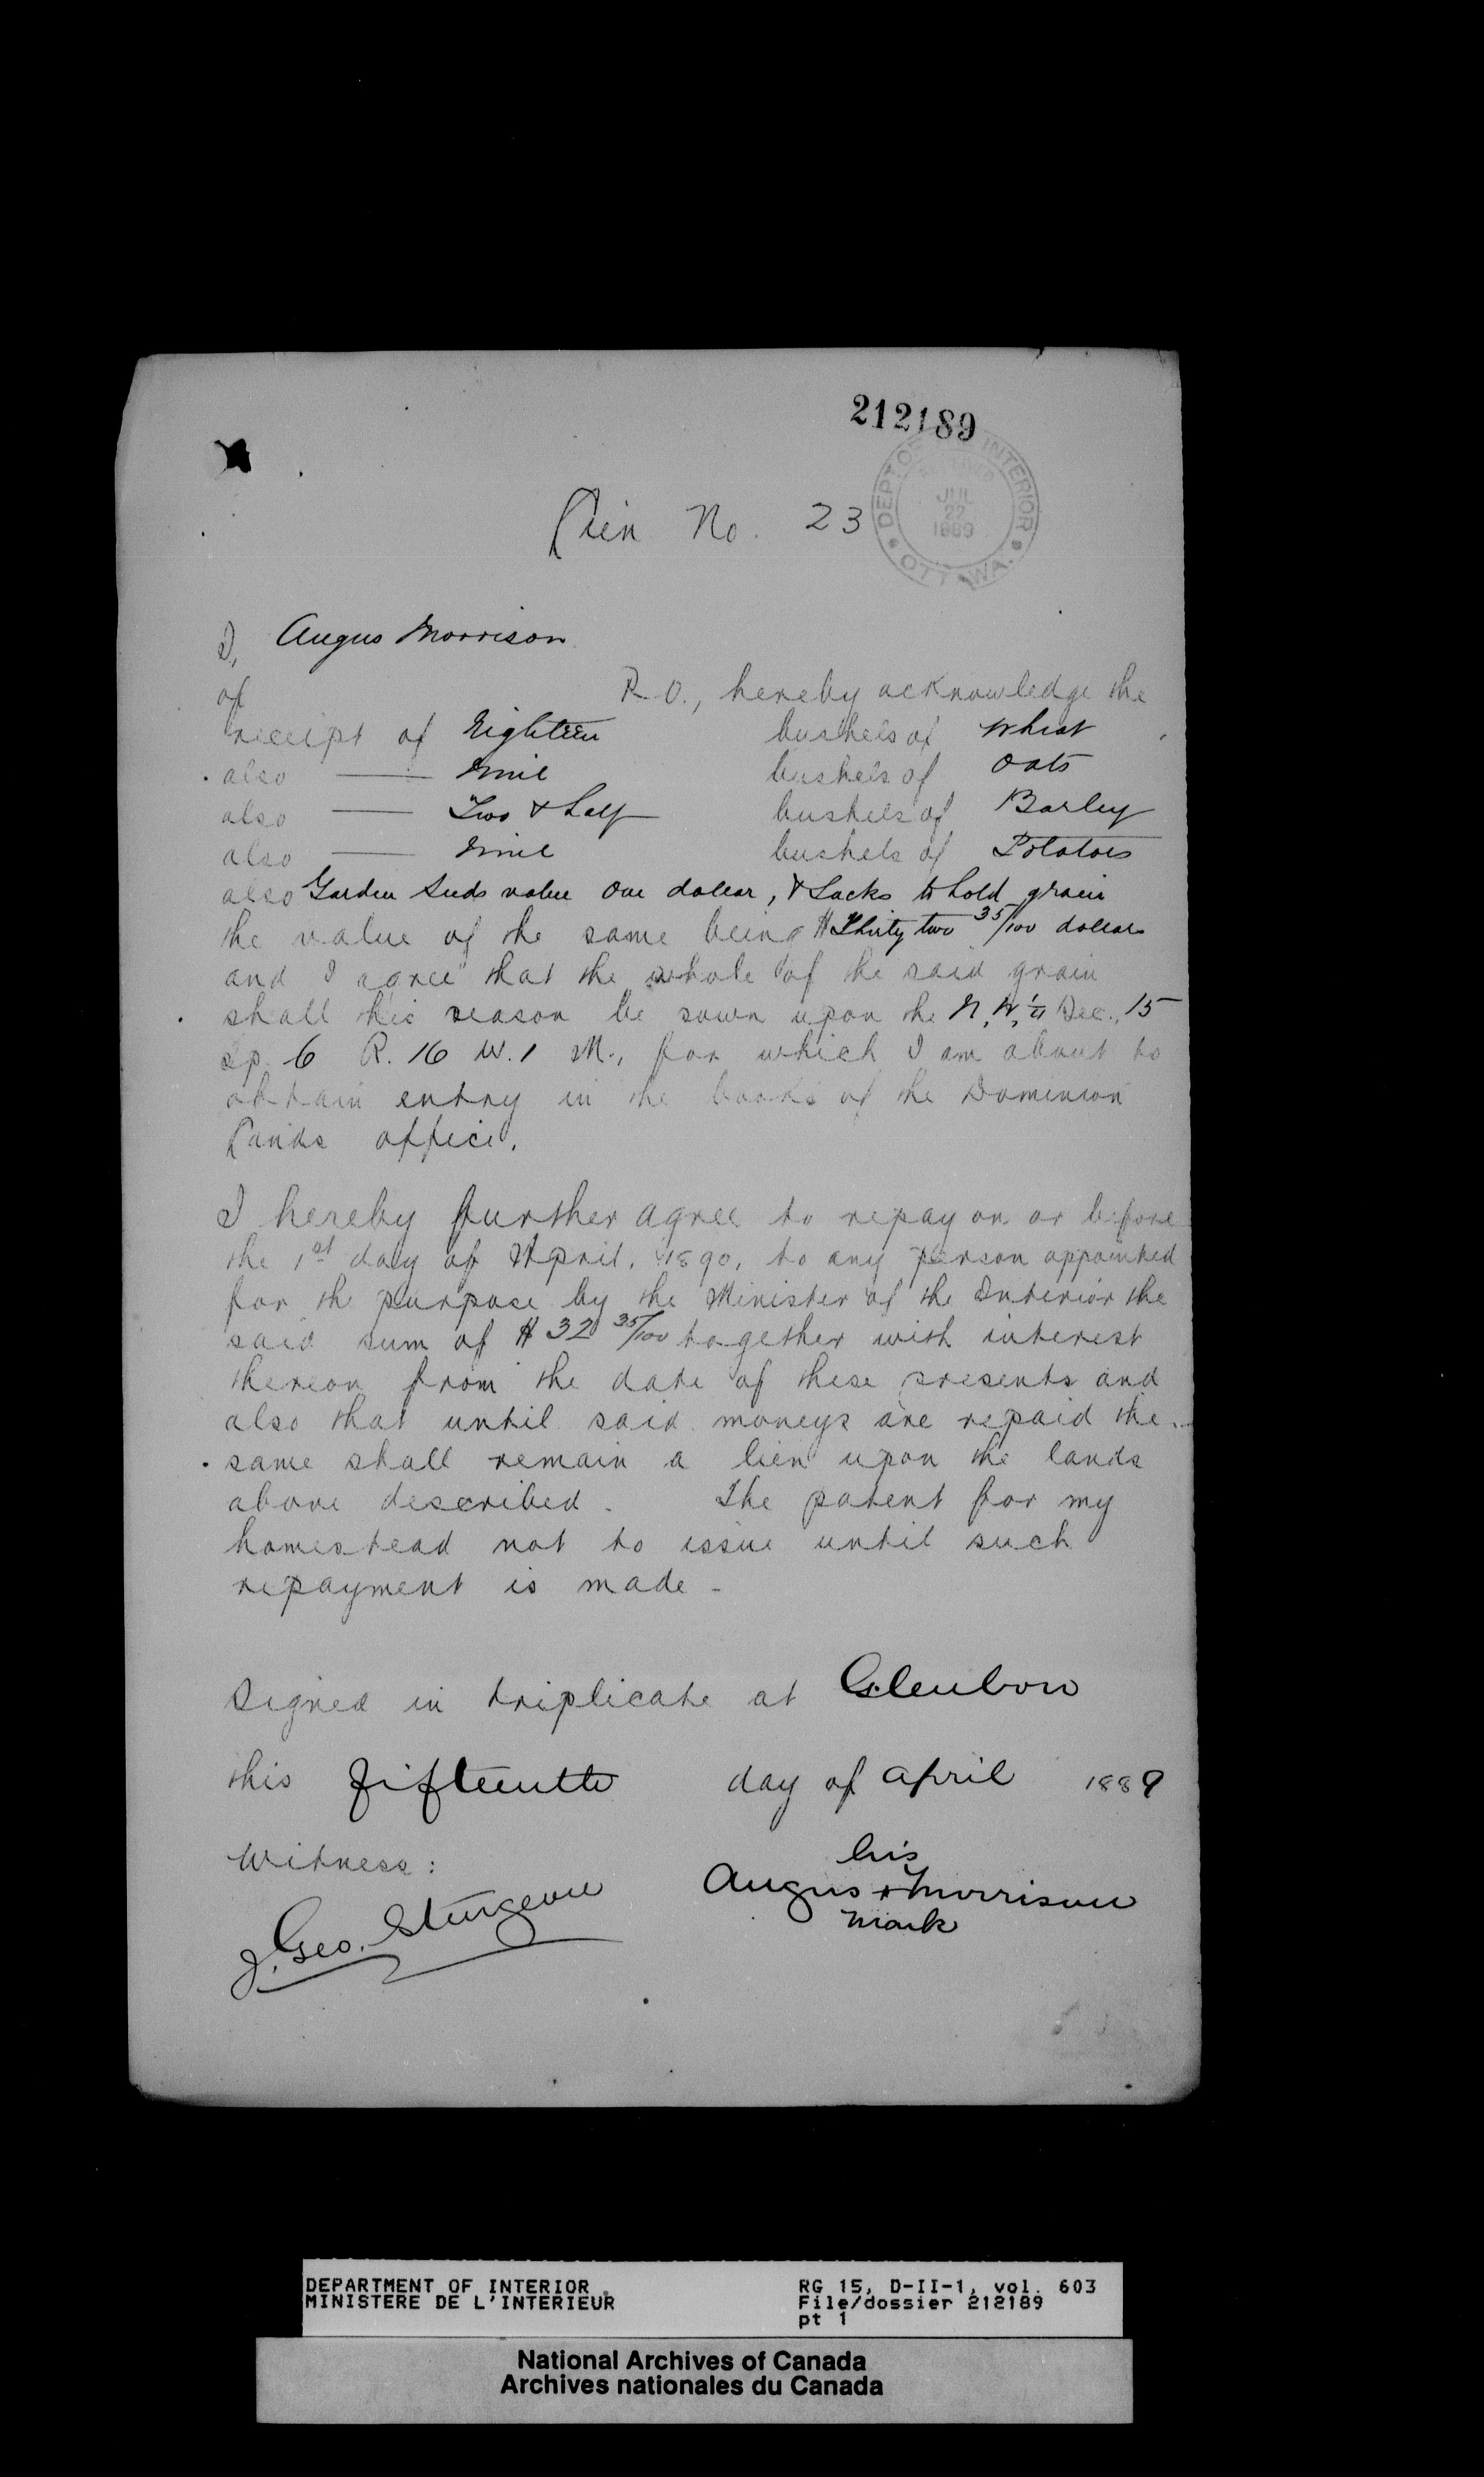 212189
DEPT. OF INTERIOR
JUL
22
1889
OTTAWA.
Lien No. 23
I, Angus Morrison
of P.O., hereby acknowledge the
receipt of Eighteen bushels of Wheat
also Nine bushels of Oats
also Two & half bushels of Barley
also Nine bushels of Potatoes
also Garden Seeds value One dollar, & Sacks to hold grain
the value of the same being $ Thirty two 35/100 dollars
and I agree that the whole of the said grain
shall this season be sown upon the N.W. 1/4 Sec. 15
Tp. 6 R. 16 W. 1 M., for which I am about to
obtain entry in the books of the Dominion
Lands office.
I hereby further agree to repay on or before
the 1st day of April, 1890, to any person appointed
for the purpose by the Minister of the Interior the
said sum of $ 32 35/100 together with interest
thereon from the date of these presents and
also that until said moneys are repaid the
same shall remain a lien upon the lands
above described. The patent for my
homestead not to issue until such
repayment is made -
Signed in triplicate at Glenbow
this fifteenth day of April 1889
Witness:
his
Angus + Morrison
mark
J. Geo. Sturgeon
DEPARTMENT OF INTERIOR
MINISTERE DE L'INTERIEUR
RG 15, D-II-1, vol. 603
File/dossier 212189
pt 1
National Archives of Canada
Archives nationales du Canada